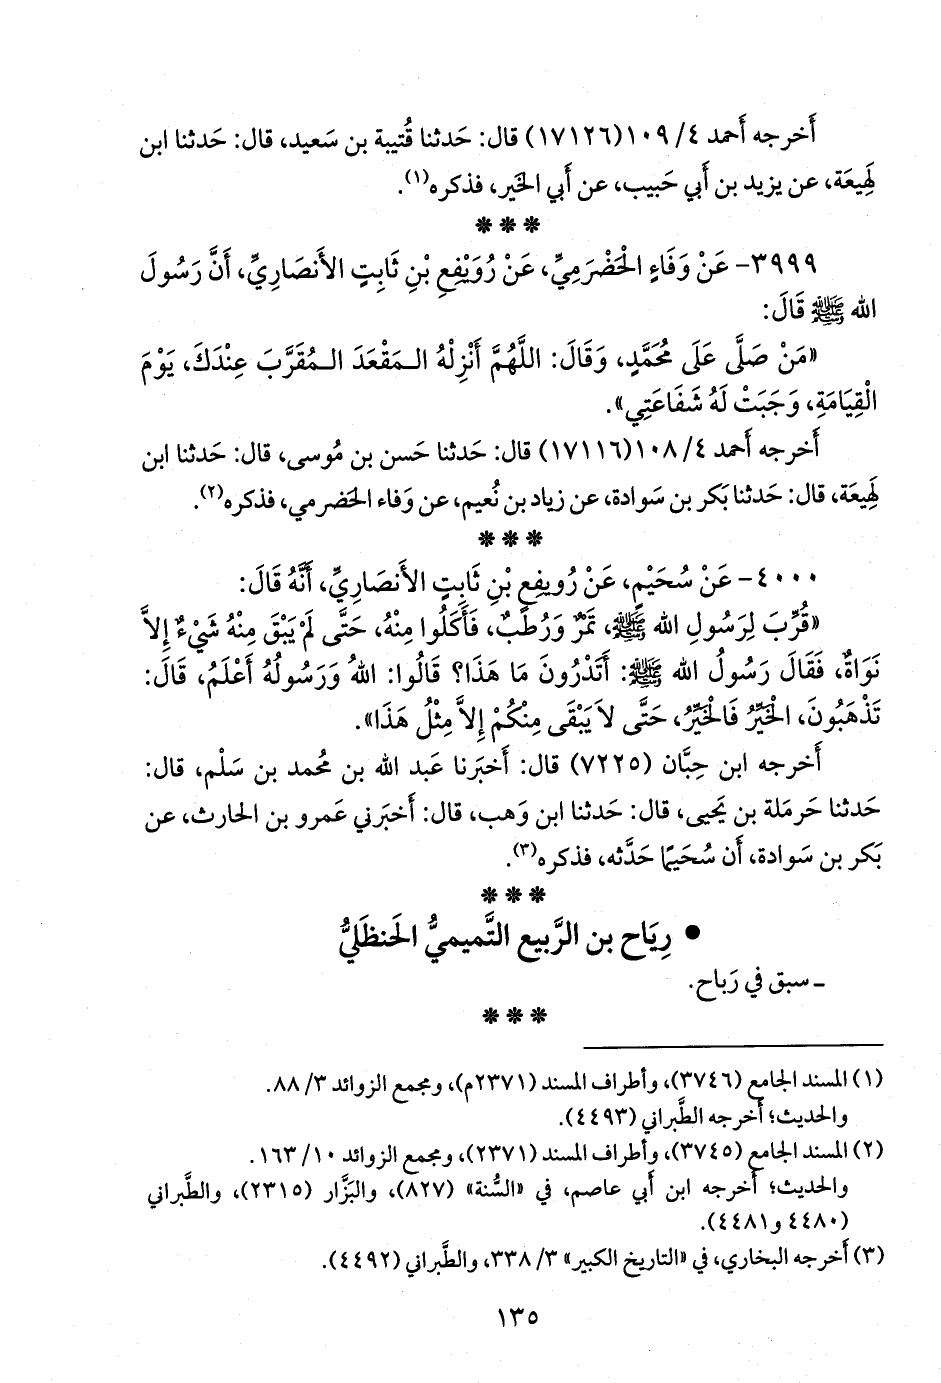 أَخرجه أَحمد ٤/ ١٠٩(١٧١٢٦) قال: حَدثنا قُتيبة بن سَعيد، قال: حَدثنا ابن
لَهِيعَة، عن يزيد بن أَبي حَبيب، عن أَبي الخَير، فذكره(١).
* * *
٣٩٩٩- عَنْ وَفَاءٍ الْحَضْرَمِيِّ، عَنْ رُوَيْفِعِ بْنِ ثَابِتٍ الأَنصَارِيِّ، أَنَّ رَسُولَ
الله ﷺ قَالَ:
«مَنْ صَلَّى عَلَى مُحَمَّدٍ، وَقَالَ: اللَّهُمَّ أَنْزِلْهُ الـمَقْعَدَ الـمُقَرَّبَ عِنْدَكَ، يَوْمَ
الْقِيَامَةِ، وَجَبَتْ لَهُ شَفَاعَتِي».
أَخرجه أَحمد ٤/ ١٠٨(١٧١١٦) قال: حَدثنا حَسن بن مُوسى، قال: حَدثنا ابن
لَهِيعَة، قال: حَدثنا بَكر بن سَوادة، عن زياد بن نُعيم، عن وَفاء الحَضرمي، فذكره(٢).
* * *
٤٠٠٠- عَنْ سُحَيْمٍ، عَنْ رُويفِعِ بْنِ ثَابِتٍ الأَنصَارِيِّ، أَنَّهُ قَالَ:
«قُرِّبَ لِرَسُولِ الله ﷺ، تَمْرٌ وَرُطَبٌ، فَأَكَلُوا مِنْهُ، حَتَّى لَمْ يَبْقَ مِنْهُ شَيْءٌ إِلاَّ
نَوَاةٌ، فَقَالَ رَسُولُ الله ﷺ: أَتَدْرُونَ مَا هَذَا؟ قَالُوا: اللهُ وَرَسُولُهُ أَعْلَمُ، قَالَ:
تَذْهَبُونَ، الْخَيِّرُ فَالْخَيِّرُ، حَتَّى لاَ يَبْقَى مِنْكُمْ إِلاَّ مِثْلُ هَذَا».
أَخرجه ابن حِبَّان (٧٢٢٥) قال: أَخبَرنا عَبد الله بن مُحمد بن سَلْم، قال:
حَدثنا حَرملة بن يَحيى، قال: حَدثنا ابن وَهب، قال: أَخبَرني عَمرو بن الحارث، عن
بَكر بن سَوادة، أَن سُحَيمًا حَدَّثه، فذكره(٣).
* * *
• رِيَاح بن الرَّبيع التَّميميُّ الحَنظَليُّ
ـ سبق في رَباح.
* * *
(١) المسند الجامع (٣٧٤٦)، وأطراف المسند (٢٣٧١م)، ومجمع الزوائد ٣/ ٨٨.
والحديث؛ أخرجه الطَّبراني (٤٤٩٣).
(٢) المسند الجامع (٣٧٤٥)، وأطراف المسند (٢٣٧١)، ومجمع الزوائد ١٠/ ١٦٣.
والحديث؛ أخرجه ابن أبي عاصم، في «السُّنة» (٨٢٧)، والبَزَّار (٢٣١٥)، والطَّبراني
(٤٤٨٠ و٤٤٨١).
(٣) أخرجه البخاري، في «التاريخ الكبير» ٣/ ٣٣٨، والطَّبراني (٤٤٩٢).
١٣٥